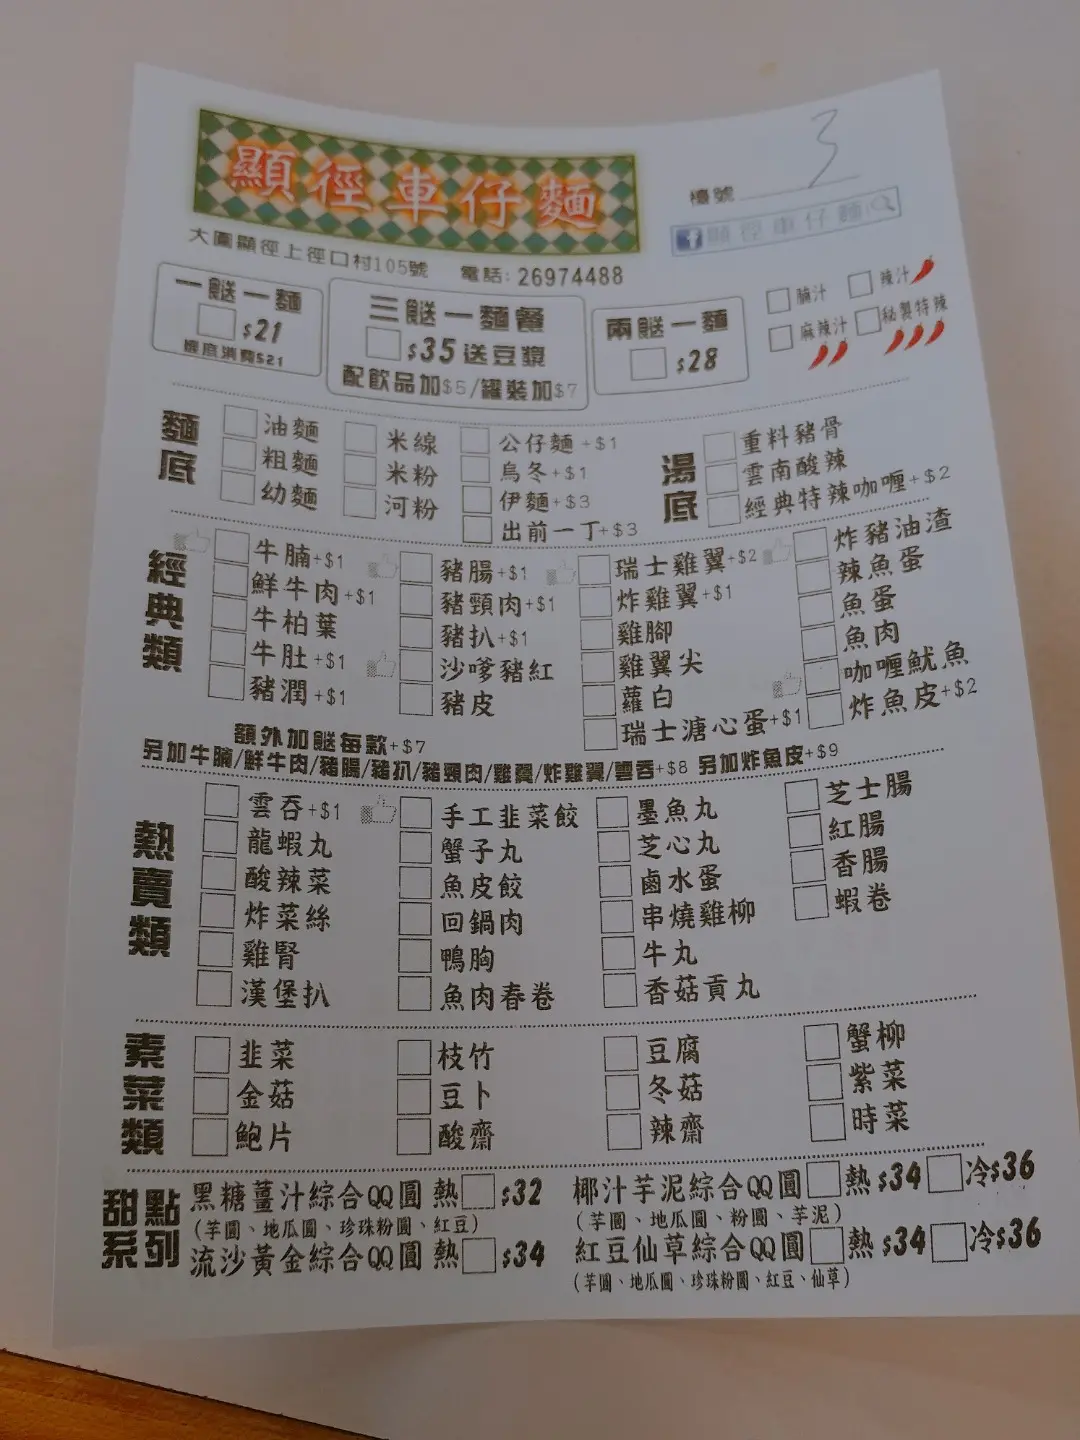 顯徑車仔麵
檯號 3
顯徑車仔麵
大圍顯徑上徑口村105號 電話: 26974488
一餸一麵
$21
最低消費$21
三餸一麵餐
$35送豆漿
配飲品加$5/罐裝加$7
兩餸一麵
$28
腩汁 辣汁
麻辣汁 秘製特辣
麵底
油麵 米線 公仔麵+$1
粗麵 米粉 烏冬+$1
幼麵 河粉 伊麵+$3
出前一丁+$3
湯底
重料豬骨
雲南酸辣
經典特辣咖喱+$2
經典類
牛腩+$1 豬腸+$1 瑞士雞翼+$2 炸豬油渣
鮮牛肉+$1 豬頸肉+$1 炸雞翼+$1 辣魚蛋
牛柏葉 豬扒+$1 雞腳 魚蛋
牛肚+$1 沙嗲豬紅 雞翼尖 魚肉
豬潤+$1 豬皮 蘿白 咖喱魷魚
瑞士溏心蛋+$1 炸魚皮+$2
額外加餸每款+$7
另加牛腩/鮮牛肉/豬腸/豬扒/豬頸肉/雞翼/炸雞翼/雲吞+$8 另加炸魚皮+$9
熱賣類
雲吞+$1 手工韭菜餃 墨魚丸 芝士腸
龍蝦丸 蟹子丸 芝心丸 紅腸
酸辣菜 魚皮餃 鹵水蛋 香腸
炸菜絲 回鍋肉 串燒雞柳 蝦卷
雞腎 鴨胸 牛丸
漢堡扒 魚肉春卷 香菇貢丸
素菜類
韭菜 枝竹 豆腐 蟹柳
金菇 豆卜 冬菇 紫菜
鮑片 酸齋 辣齋 時菜
甜點系列
黑糖薑汁綜合QQ圓 熱 $32
(芋圓、地瓜圓、珍珠粉圓、紅豆)
流沙黃金綜合QQ圓 熱 $34
椰汁芋泥綜合QQ圓 熱$34 冷$36
(芋圓、地瓜圓、粉圓、芋泥)
紅豆仙草綜合QQ圓 熱$34 冷$36
(芋圓、地瓜圓、珍珠粉圓、紅豆、仙草)